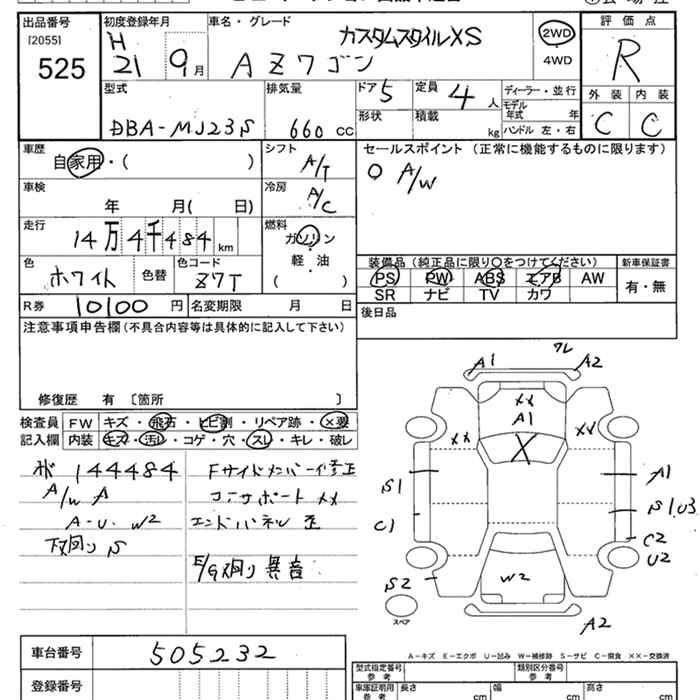 出品番号
[2055]
525
初度登録年月
H
21 9月
車名・グレード
カスタムスタイルXS
AZワゴン
2WD
・
4WD
評価点
R
外装 内装
C C
型式
DBA-MJ23S
排気量
660 cc
ドア 5
形状
定員 4 人
積載 kg
ディーラー・並行
モデル年式 年
ハンドル 左・右
車歴
自家用・( )
車検
年 月( 日)
走行
14万4千484km
色
ホワイト
色替
色コード
Z7T
シフト
A/T
冷房
A/C
燃料
ガソリン
・
軽・油
・
( )
セールスポイント (正常に機能するものに限ります)
○ A/W
装備品 (純正品に限り〇をつけてください)
PS PW ABS エアB AW
SR ナビ TV カワ
新車保証書
有・無
R券 10100 円
名変期限 月 日
後日品
注意事項申告欄 (不具合内容等は具体的に記入して下さい)
修復歴 有 〔箇所 〕
検査員記入欄
FW キズ・飛石・ヒビ割・リペア跡・×要
内装 キズ・汚レ・コゲ・穴・スレ・キレ・破レ
144484
A/W A
A-U. W2
下廻り S
Fサイドメンバー修正
コアサポート XX
エンドパネル 歪
E/G廻り 異音
A1 ワレ A2
XX
A1
XX XX
X
S1 A1
C1 S1.U3
C2
U2
S2 W2
A2
スペア
A-キズ E-エクボ U-凹み W-補修跡 S-サビ C-腐食 XX-交換済
車台番号
505232
登録番号
型式指定番号
参考
類別区分番号
参考
車庫証明用
参考
長さ cm
幅 cm
高さ cm